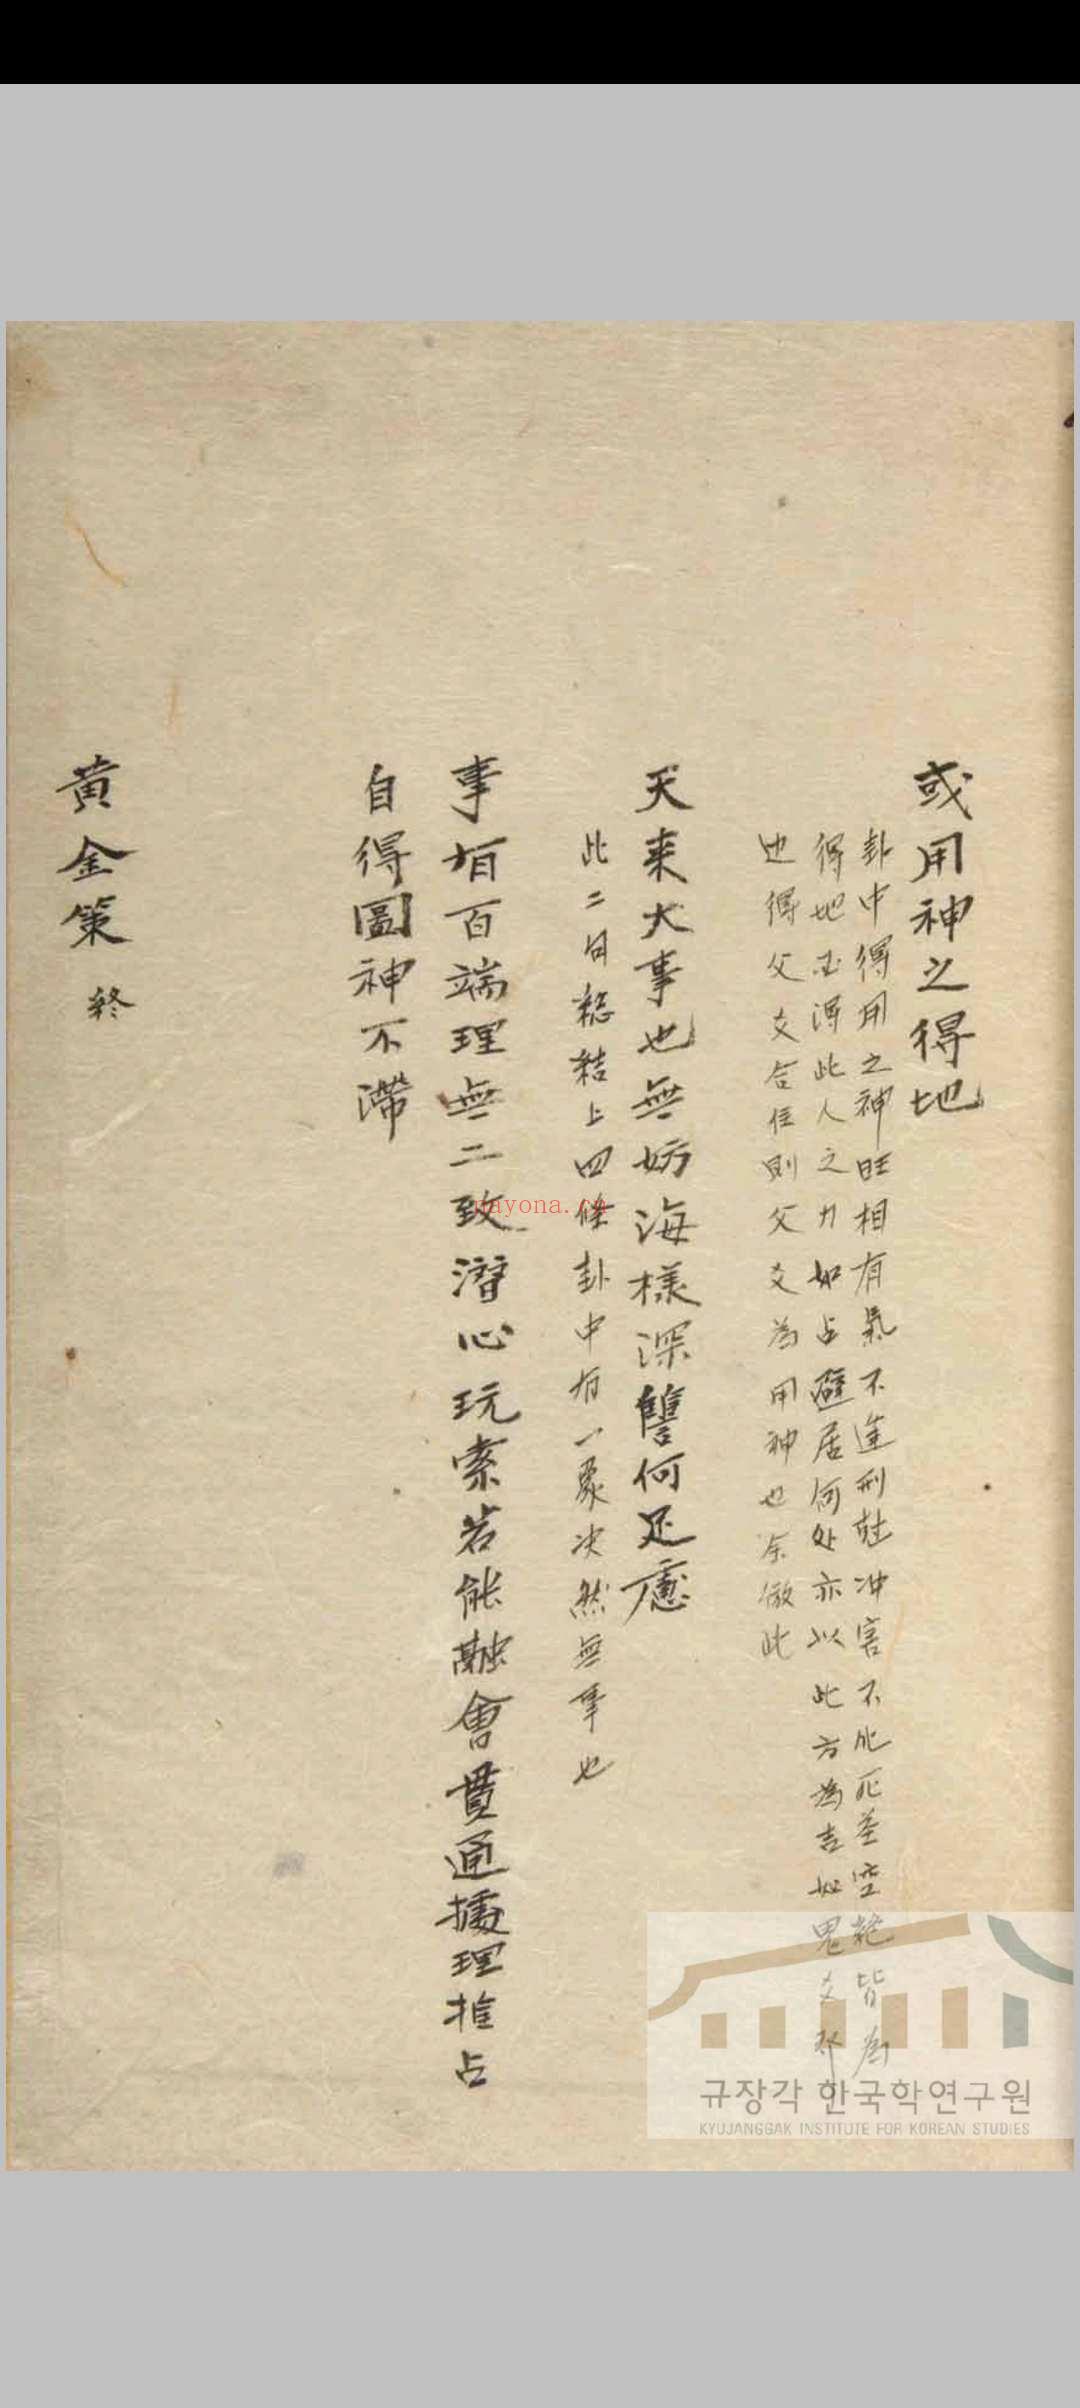 或用神之得地
卦中得用之神旺相有氣不逢刑尅冲害不化死墓空絶皆為
得地必得此人之力如占避居何处亦以此方為吉如鬼爻
也得父爻合住則父爻為用神也余倣此
天来大事也無妨海様深讐何足慮
此二句総結上四條卦中有一象决然無事也
事有百端理無二致潛心玩索若能融會貫通據理推占
自得圓神不滯
黄金策 終
nayona.cn
규장각 한국학연구원
KYUJANGGAK INSTITUTE FOR KOREAN STUDIES